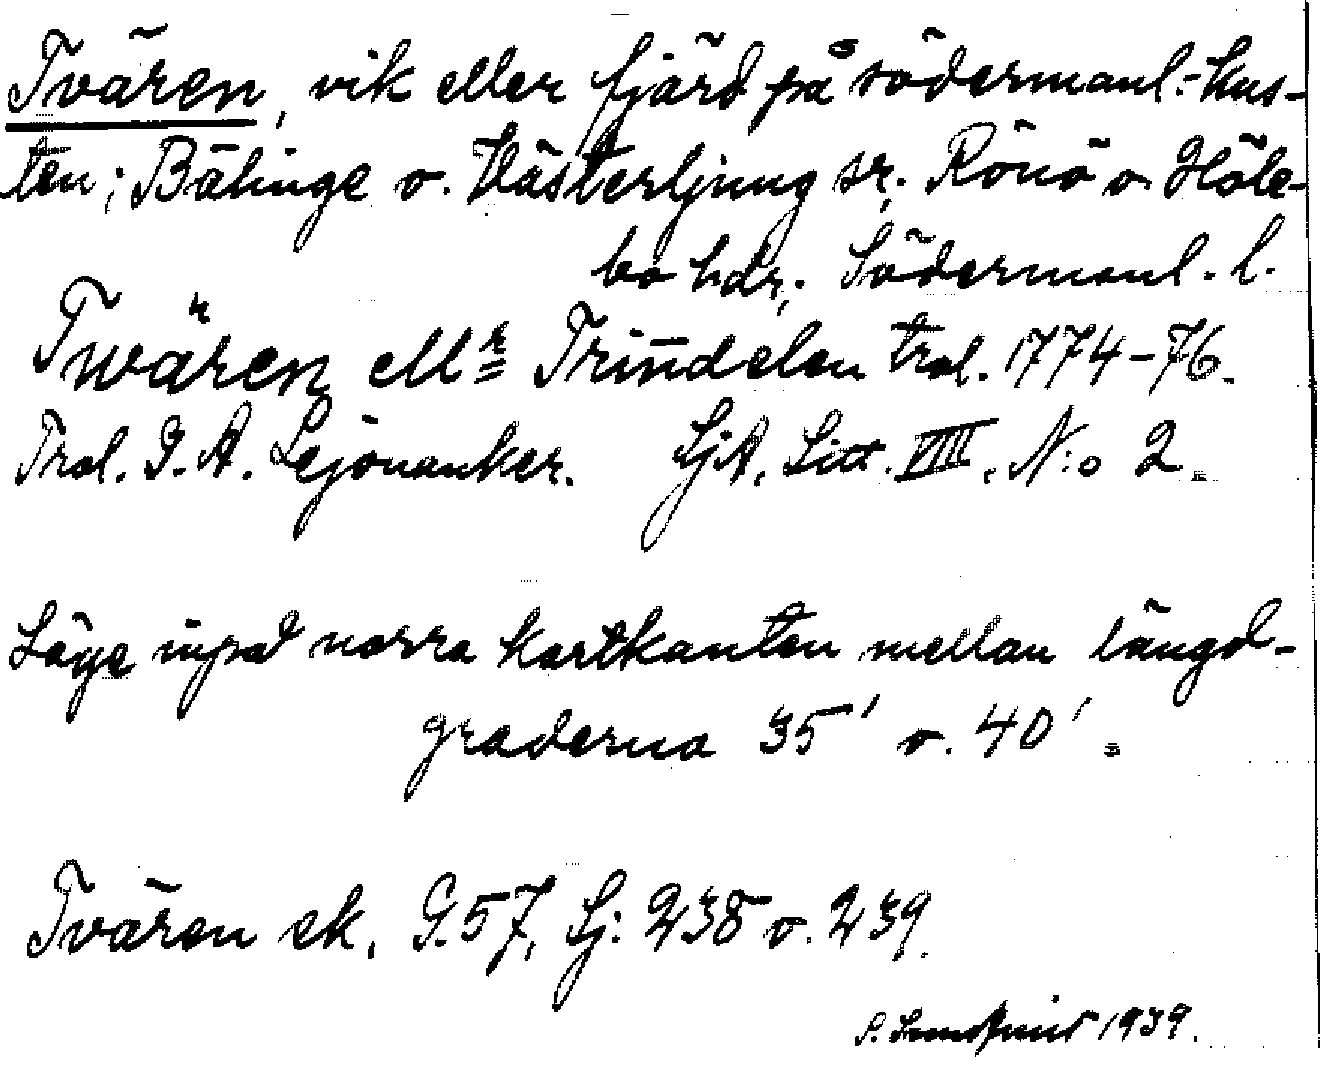 Tvären, vik eller fjärd på södermanl.-kus-
ten; Bälinge o. Västerljung sr. Rönö o. Höle-
bo hdr; Södermanl. l.
Twären ell:r Trindelen tral. 1774-76.
Tral. G. A. Lejonanker. SjA. Litt. VIII. N:o 2.
Läge invid norra kartkanten mellan längd-
graderna 35' o. 40'.
Tvären ek. G. 57, Sj: 238 o. 239.
S. Sundqvist 1939.